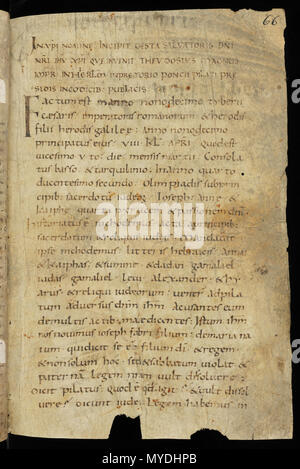 66
IN NOMINE INCIPIT GESTA SALVATORIS DNI
NRI QUE INVENIT THEVDOSIVS MAGNVS
IN PRETORIO PONCII PILATI PRE
SIDIS IN CODICIB PUBLICIS
Factum est in anno nonodecimo tyberii
caesaris imperatoris romanorum & herodis
filii herodis galilee anno nonodecimo
principatus eius VIII KL APRL quod est
vicesimo v to die mensis martii Consola
tus basso & tarquilino in anno quarto
ducentesimo secundo Olimpiadis sub prin
cipib sacerdotu iudeoru Ioseph anne &
kaiphe quanta post cruce & passione dni
historiatus e nichodemus acta a principib
sacerdotum & reliquis iudeis
ipse nichodemus litteris hebraicis Annas
& kaiphas & sumne & dadan gamaliel
iudas gamaliel levi Alexander &
arus & reliqui iudeorum venerunt ad pila
tum adversus dnm ihm Accusantes eum
de multis actib male dicentes Istum ihm
nos novimus ioseph fabri filium de maria na
tum qui dicit se e filium di & regem
& non solum hoc sed & sabbatum violat &
paternam legem nram vult dissolvere
dicit pilatus quod e qd agit & vult dissol
vere dicunt iudei Legem habemus in
www.alamy.com - MYDHPB